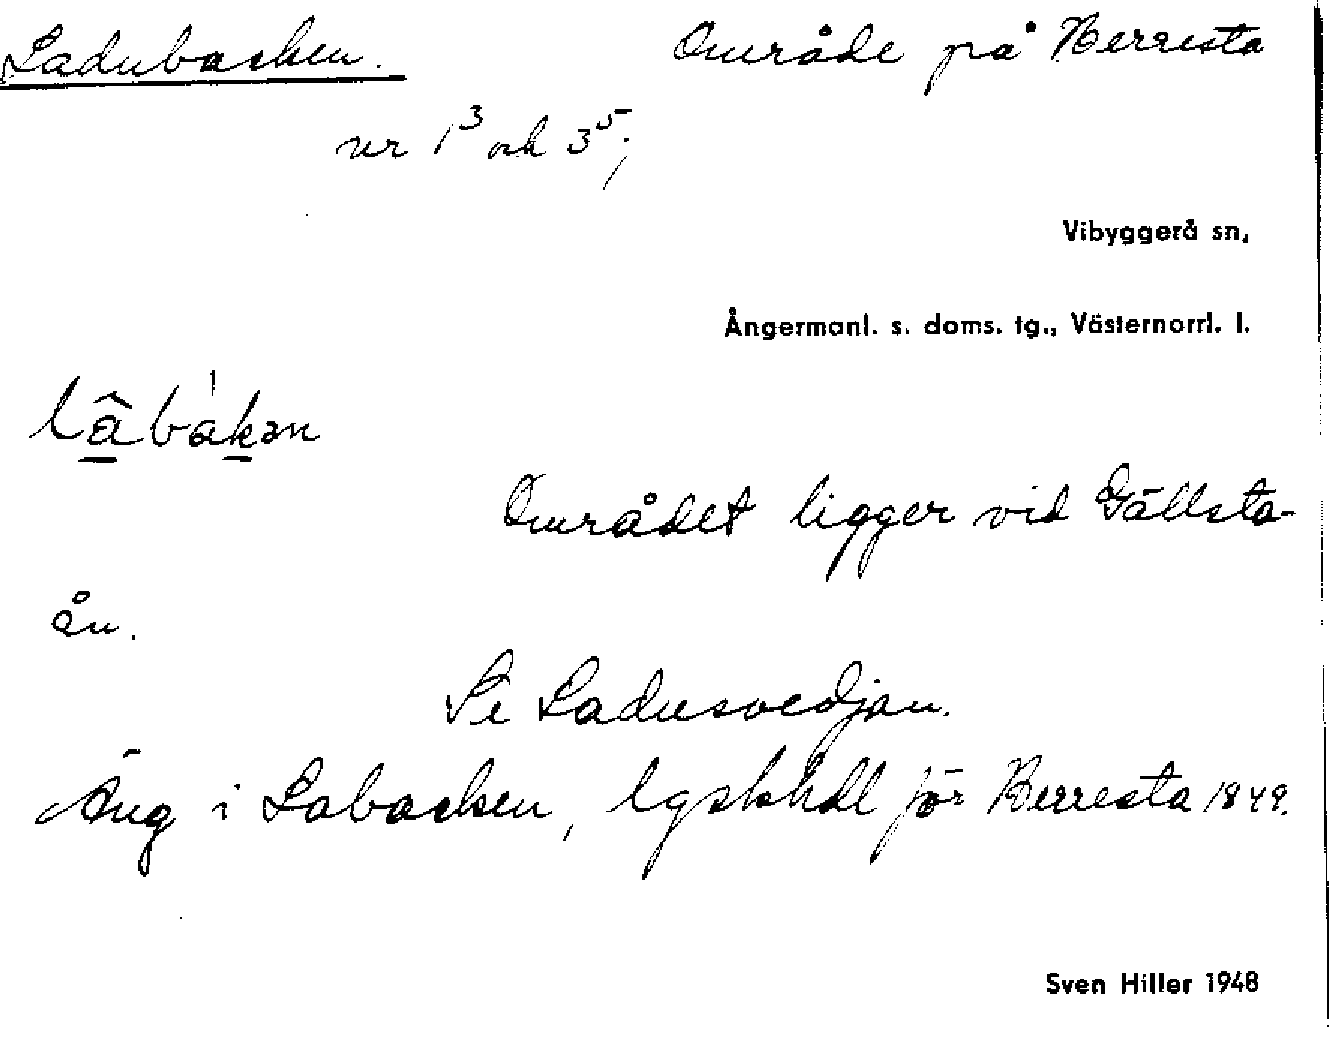 Ladubacken. Område på Herresta
nr 1³ och 3⁵;
Vibyggerå sn,
Ångermanl. s. doms. tg., Västernorrl. l.
lâb`ak̲ən
Området ligger vid Gällsta-
ån.
Se Ladusvedjan.
Äng i Labacken, för Herresta 1849.
Sven Hiller 1948